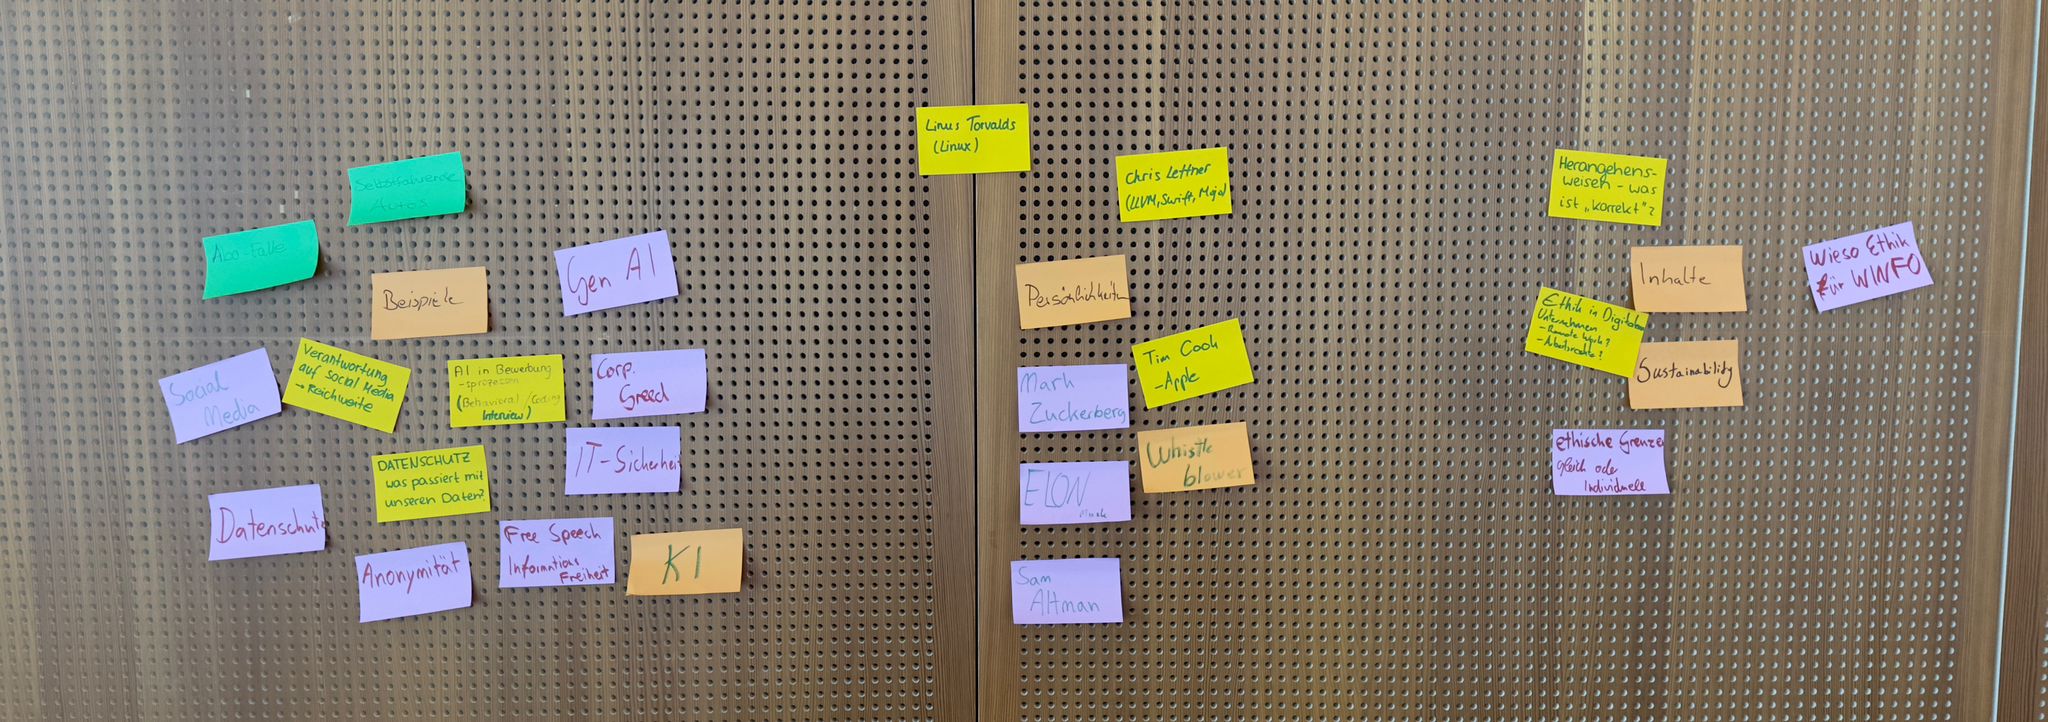 Selbstfahrende
Autos
Abo-Falle
Beispiele
Gen AI
Social
Media
Verantwortung
auf Social Media
→ Reichweite
AI in Bewerbung
-sprozessen
(Behavioral / Coding
Interview)
Corp.
Greed
DATENSCHUTZ
was passiert mit
unseren Daten?
IT-Sicherheit
Datenschutz
Anonymität
Free Speech
Informations
Freiheit
KI
Linus Torvalds
(Linux)
Chris Lettner
(LLVM, Swift, Mojo)
Persönlichkeiten
Tim Cook
-Apple
Mark
Zuckerberg
Whistle
blower
ELON
Musk
Sam
Altman
Herangehens-
weisen - was
ist „korrekt"?
Inhalte
Wieso Ethik
für WINFO
Ethik in Digitalen
Unternehmen
- Remote Work?
- Arbeitsrechte?
Sustainability
ethische Grenzen
gleich oder
Individuell